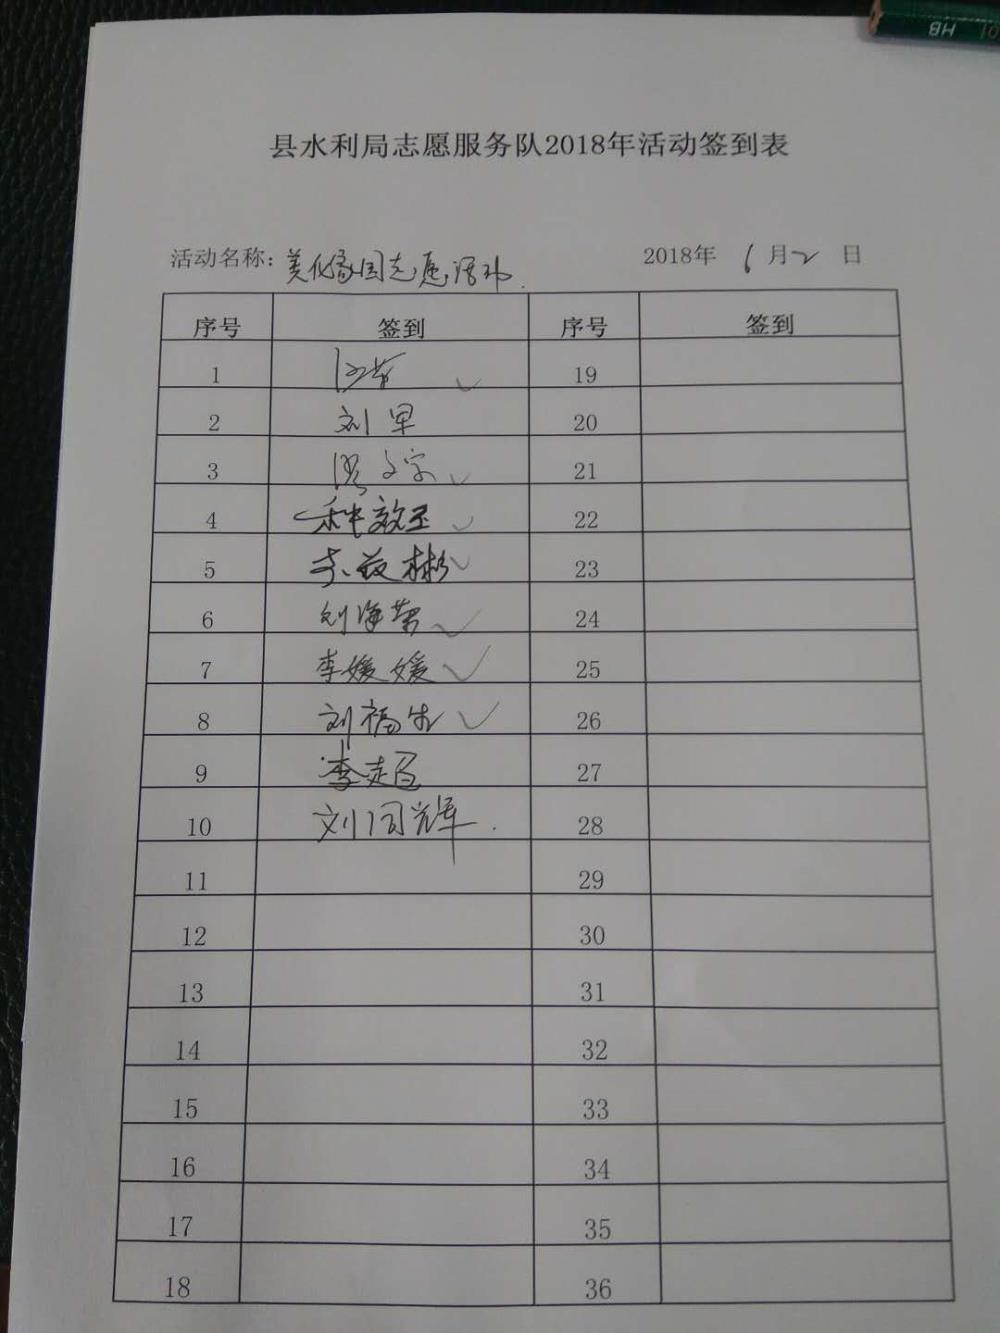 HB
县水利局志愿服务队2018年活动签到表
活动名称：美化家园志愿活动. 2018年 6月2日
序号 签到 序号 签到
1 19
2 刘军 20
3 21
4 22
5 23
6 刘海荣 24
7 李媛媛 25
8 刘福生 26
9 李超 27
10 刘国辉. 28
11 29
12 30
13 31
14 32
15 33
16 34
17 35
18 36